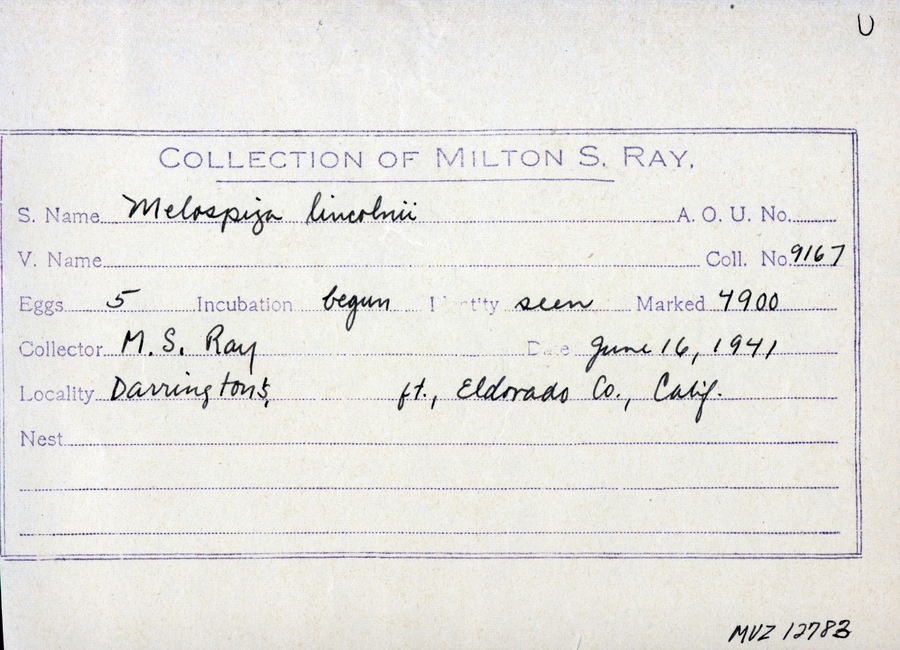 U
COLLECTION OF MILTON S. RAY.
S. Name Melospiza lincolnii A. O. U. No.
V. Name Coll. No. 9167
Eggs 5 Incubation begun I ntity seen Marked 4900
Collector M. S. Ray Date June 16, 1941
Locality Darrington's, ft., Eldorado Co., Calif.
Nest
MVZ 12783